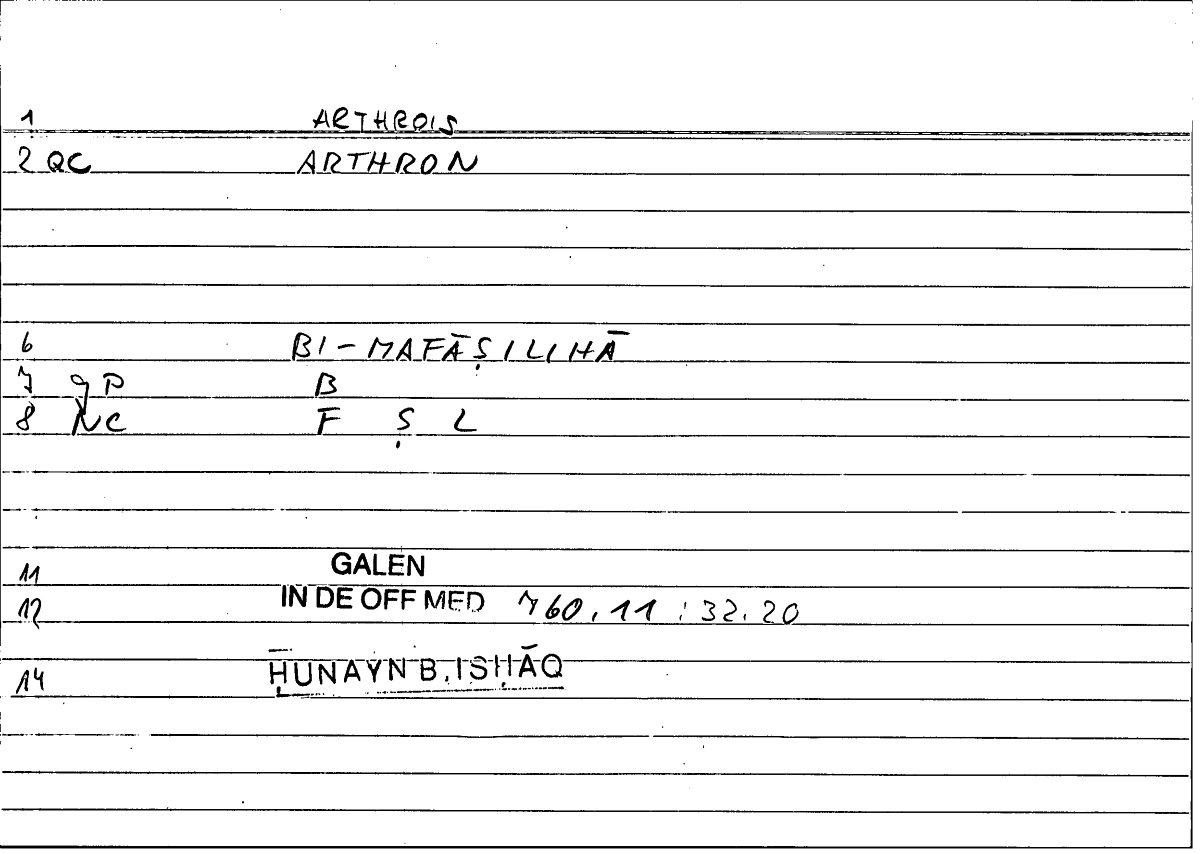 1 ARTHROIS
2 QC ARTHRON
6 BI-MAFĀṢILIHĀ
7 gP B
8 NC F Ṣ L
11 GALEN
12 IN DE OFF MED 760.11 : 32.20
14 ḤUNAYN B. ISḤĀQ